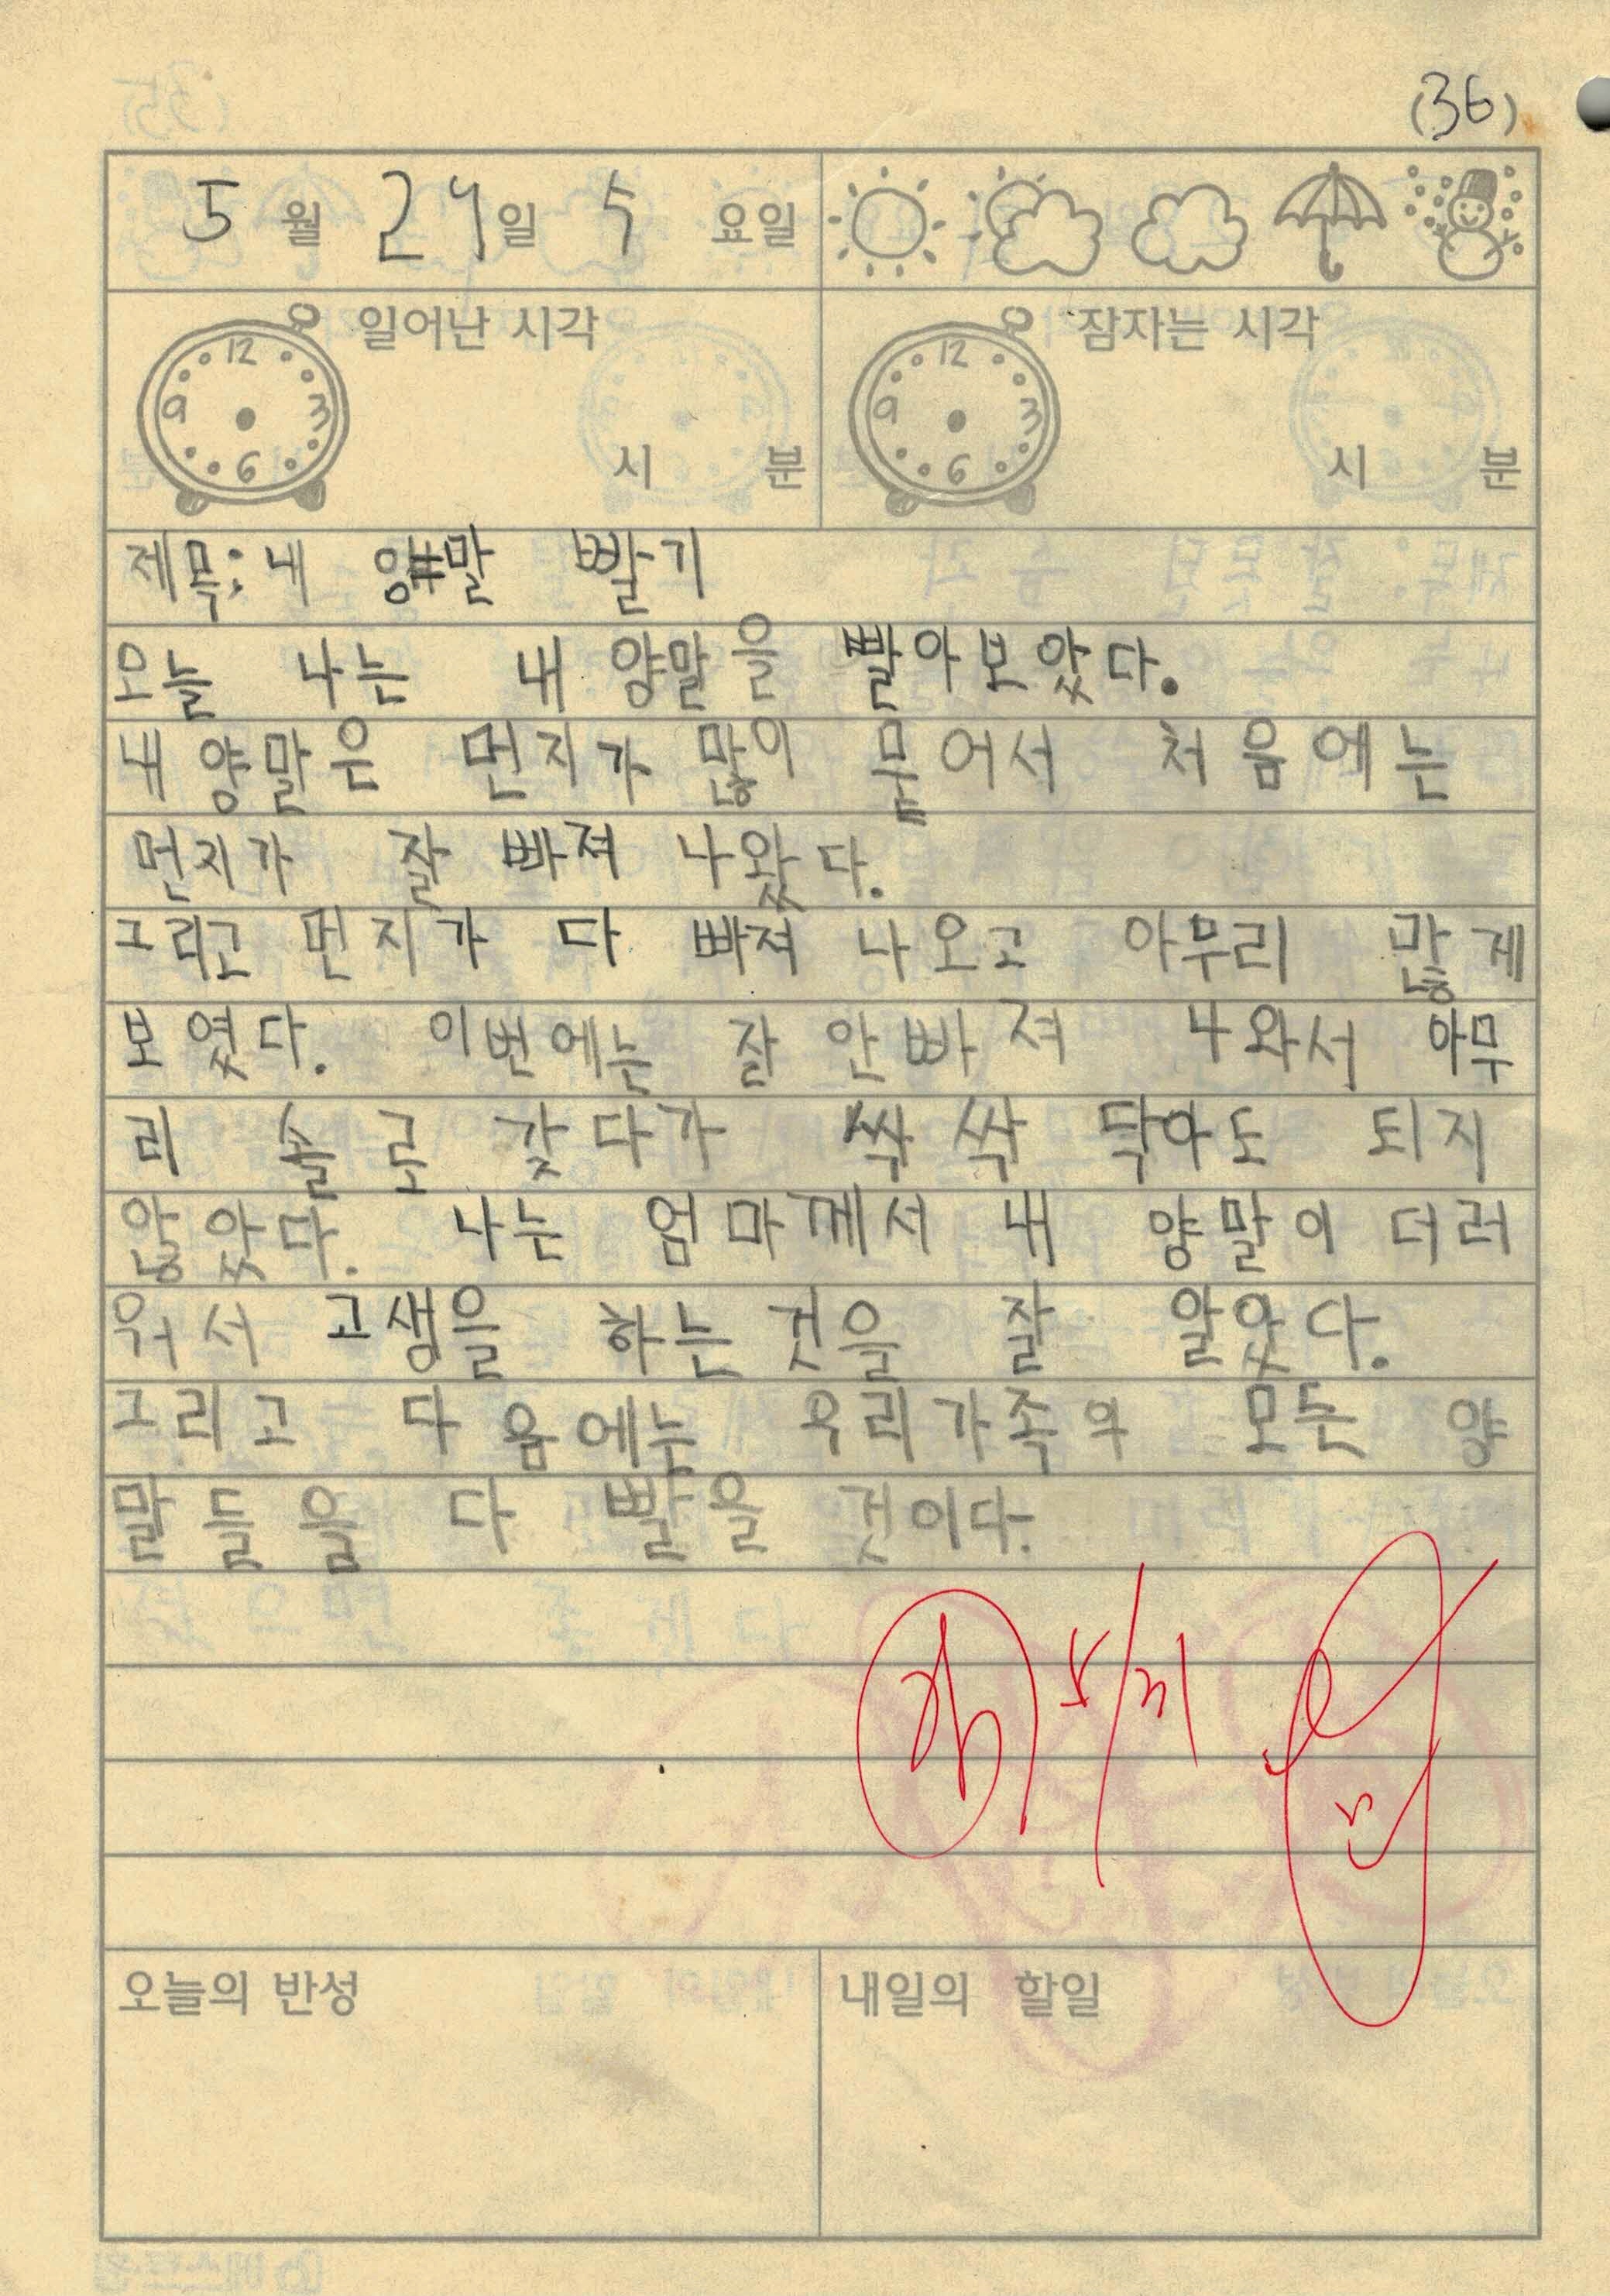 (36)
5 월 29 일 5 요일
일어난 시각 잠자는 시각
12 3 6 9 12 3 6 9
시 분 시 분
제목: 내 양말 빨기
오늘 나는 내 양말을 빨아보았다.
내 양말은 먼지가 많이 뭍어서 처음에는
먼지가 잘 빠져 나왔다.
그리고 먼지가 다 빠져 나오고 아무리 많게
보였다. 이번에는 잘 안빠져 나와서 아무
리 솔로 갖다가 싹싹 닥아도 되지
않았다. 나는 엄마께서 내 양말이 더러
워서 고생을 하는 것을 잘 알았다.
그리고 다음에는 우리가족의 모든 양
말들을 다 빨을 것이다.
5/31
오늘의 반성 내일의 할일